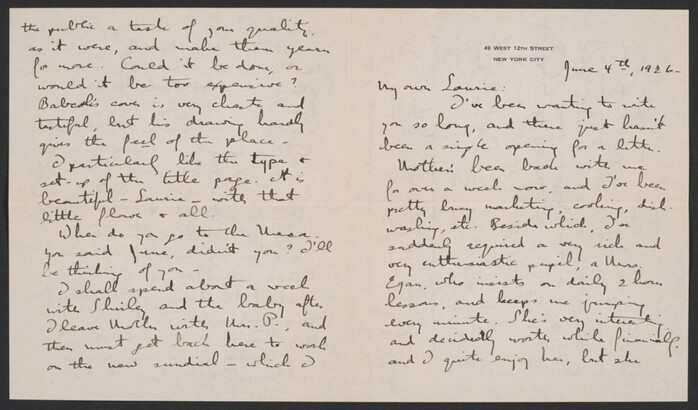 49 WEST 12TH STREET
NEW YORK CITY
June 4th, 1926-
My own Laurie:
I've been wanting to write
you so long, and there just hasn't
been a single opening for a letter.
Mother's been back with me
for over a week now, and I've been
pretty busy marketing, cooking, dish-
washing, etc. Besides which, I've
suddenly required a very rich and
very enthusiastic pupil, a Mrs.
Egan, who insists on daily 2 hour
lessons, and keeps me jumping
every minute. She's very interesting
and decidedly worth while financially.
and I quite enjoy her, but she
the public a taste of your quality,
as it were, and make them yearn
for more. Could it be done, or
would it be too expensive?
cover is very chaste and
tasteful, but his drawing hardly
gives the feel of the place -
I particularly like the type &
set-up of the title page. It is
beautiful - Laurie - with that
little flower & all.
When do you go to the Mesa.
You said June, didn't you? I'll
be thinking of you -
I shall spend about a week
with Shirley and the baby after
I leave Mother with Mrs. P., and
then must get back here to work
on the new sundial - which I